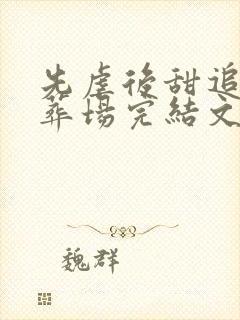 先虐後甜追
葬場完結文
魏群